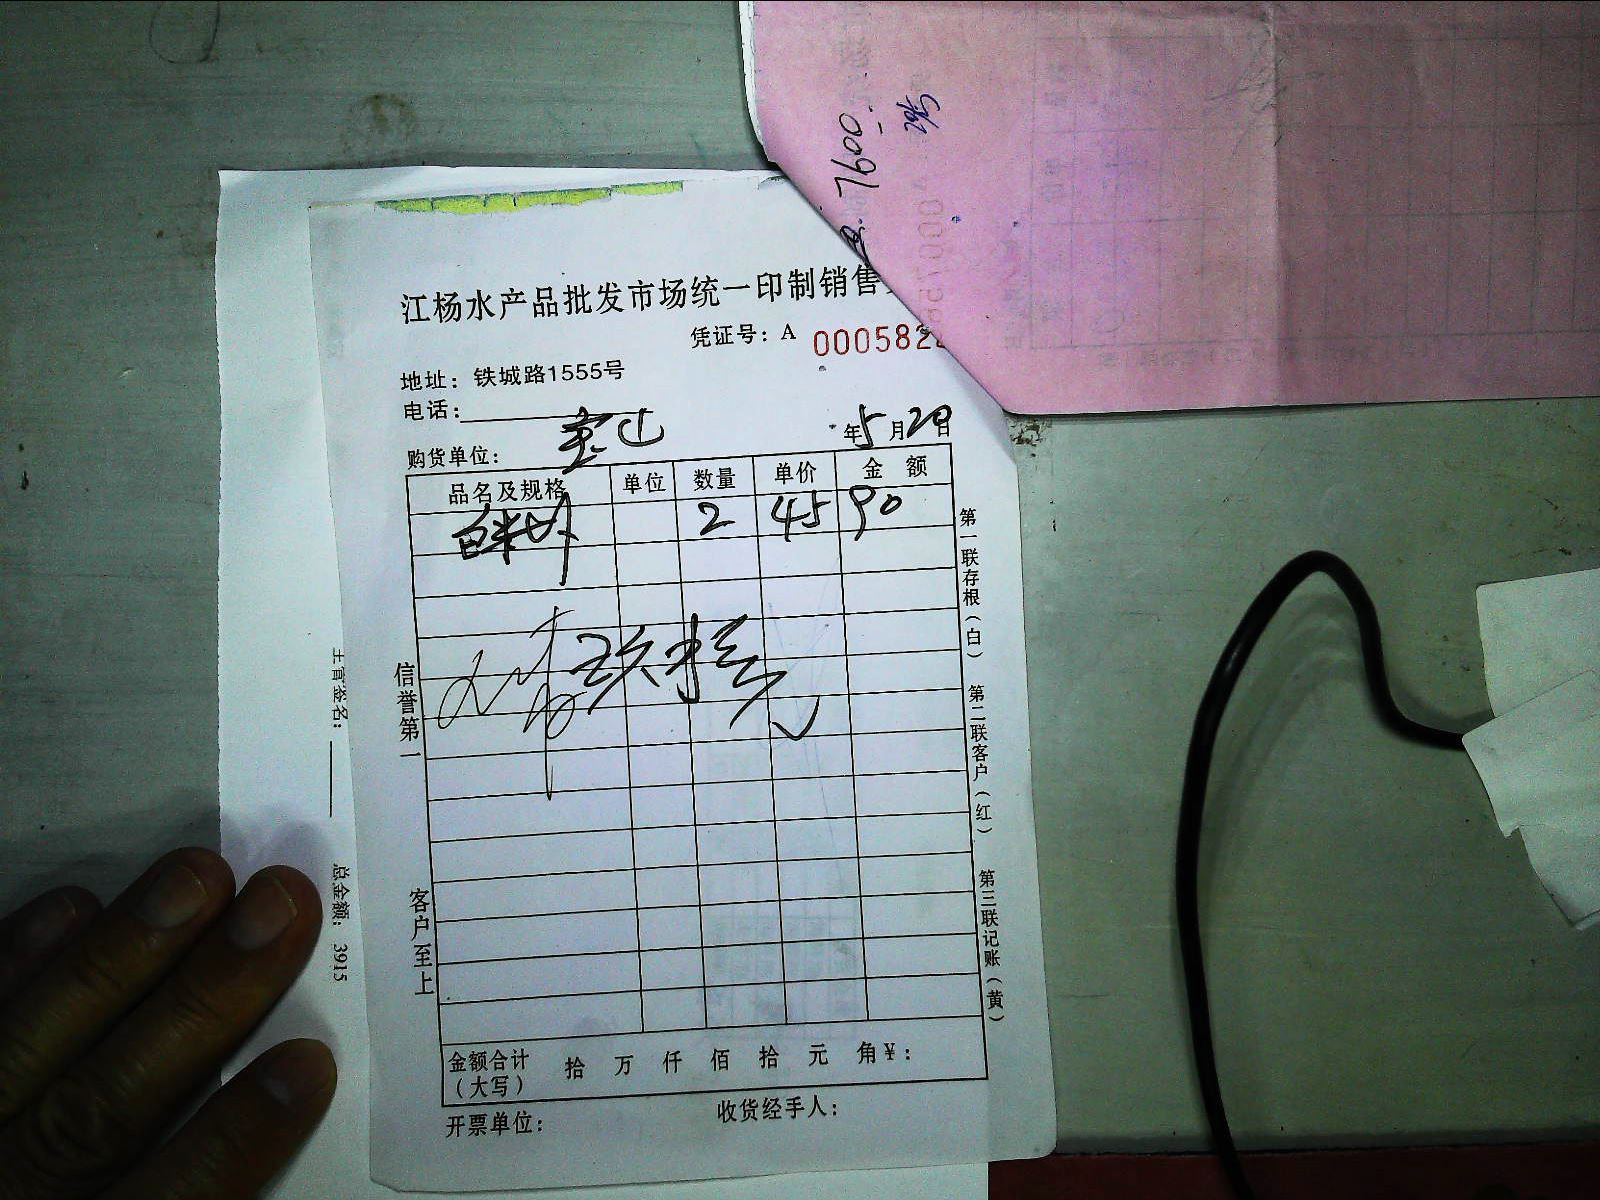 7600
江杨水产品批发市场统一印制销售
凭证号：A 000582
地址：铁城路1555号
电话：
购货单位：宝山 年5月20日
品名及规格 单位 数量 单价 金额
白米虾 2 45 90
玖拾元
信誉第一
客户至上
第一联存根（白）
第二联客户（红）
第三联记账（黄）
金额合计（大写） 拾 万 仟 佰 拾 元 角¥：
开票单位： 收货经手人：
主管签名：
总金额：3915